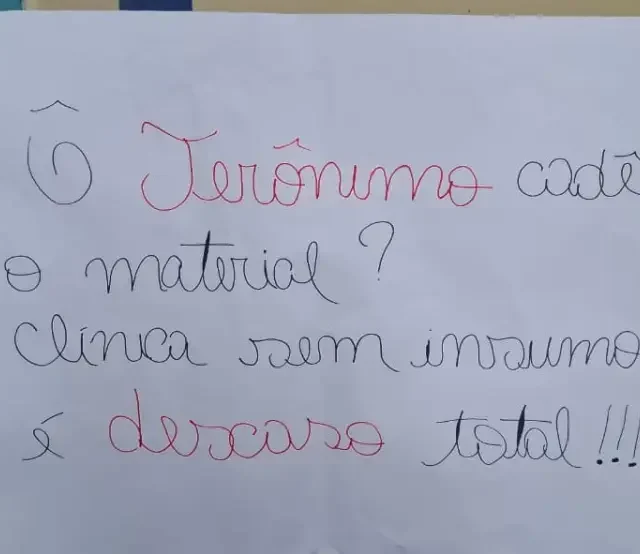 Ô Jerônimo cadê
o material?
clínica sem insumo
é descaso total!!!